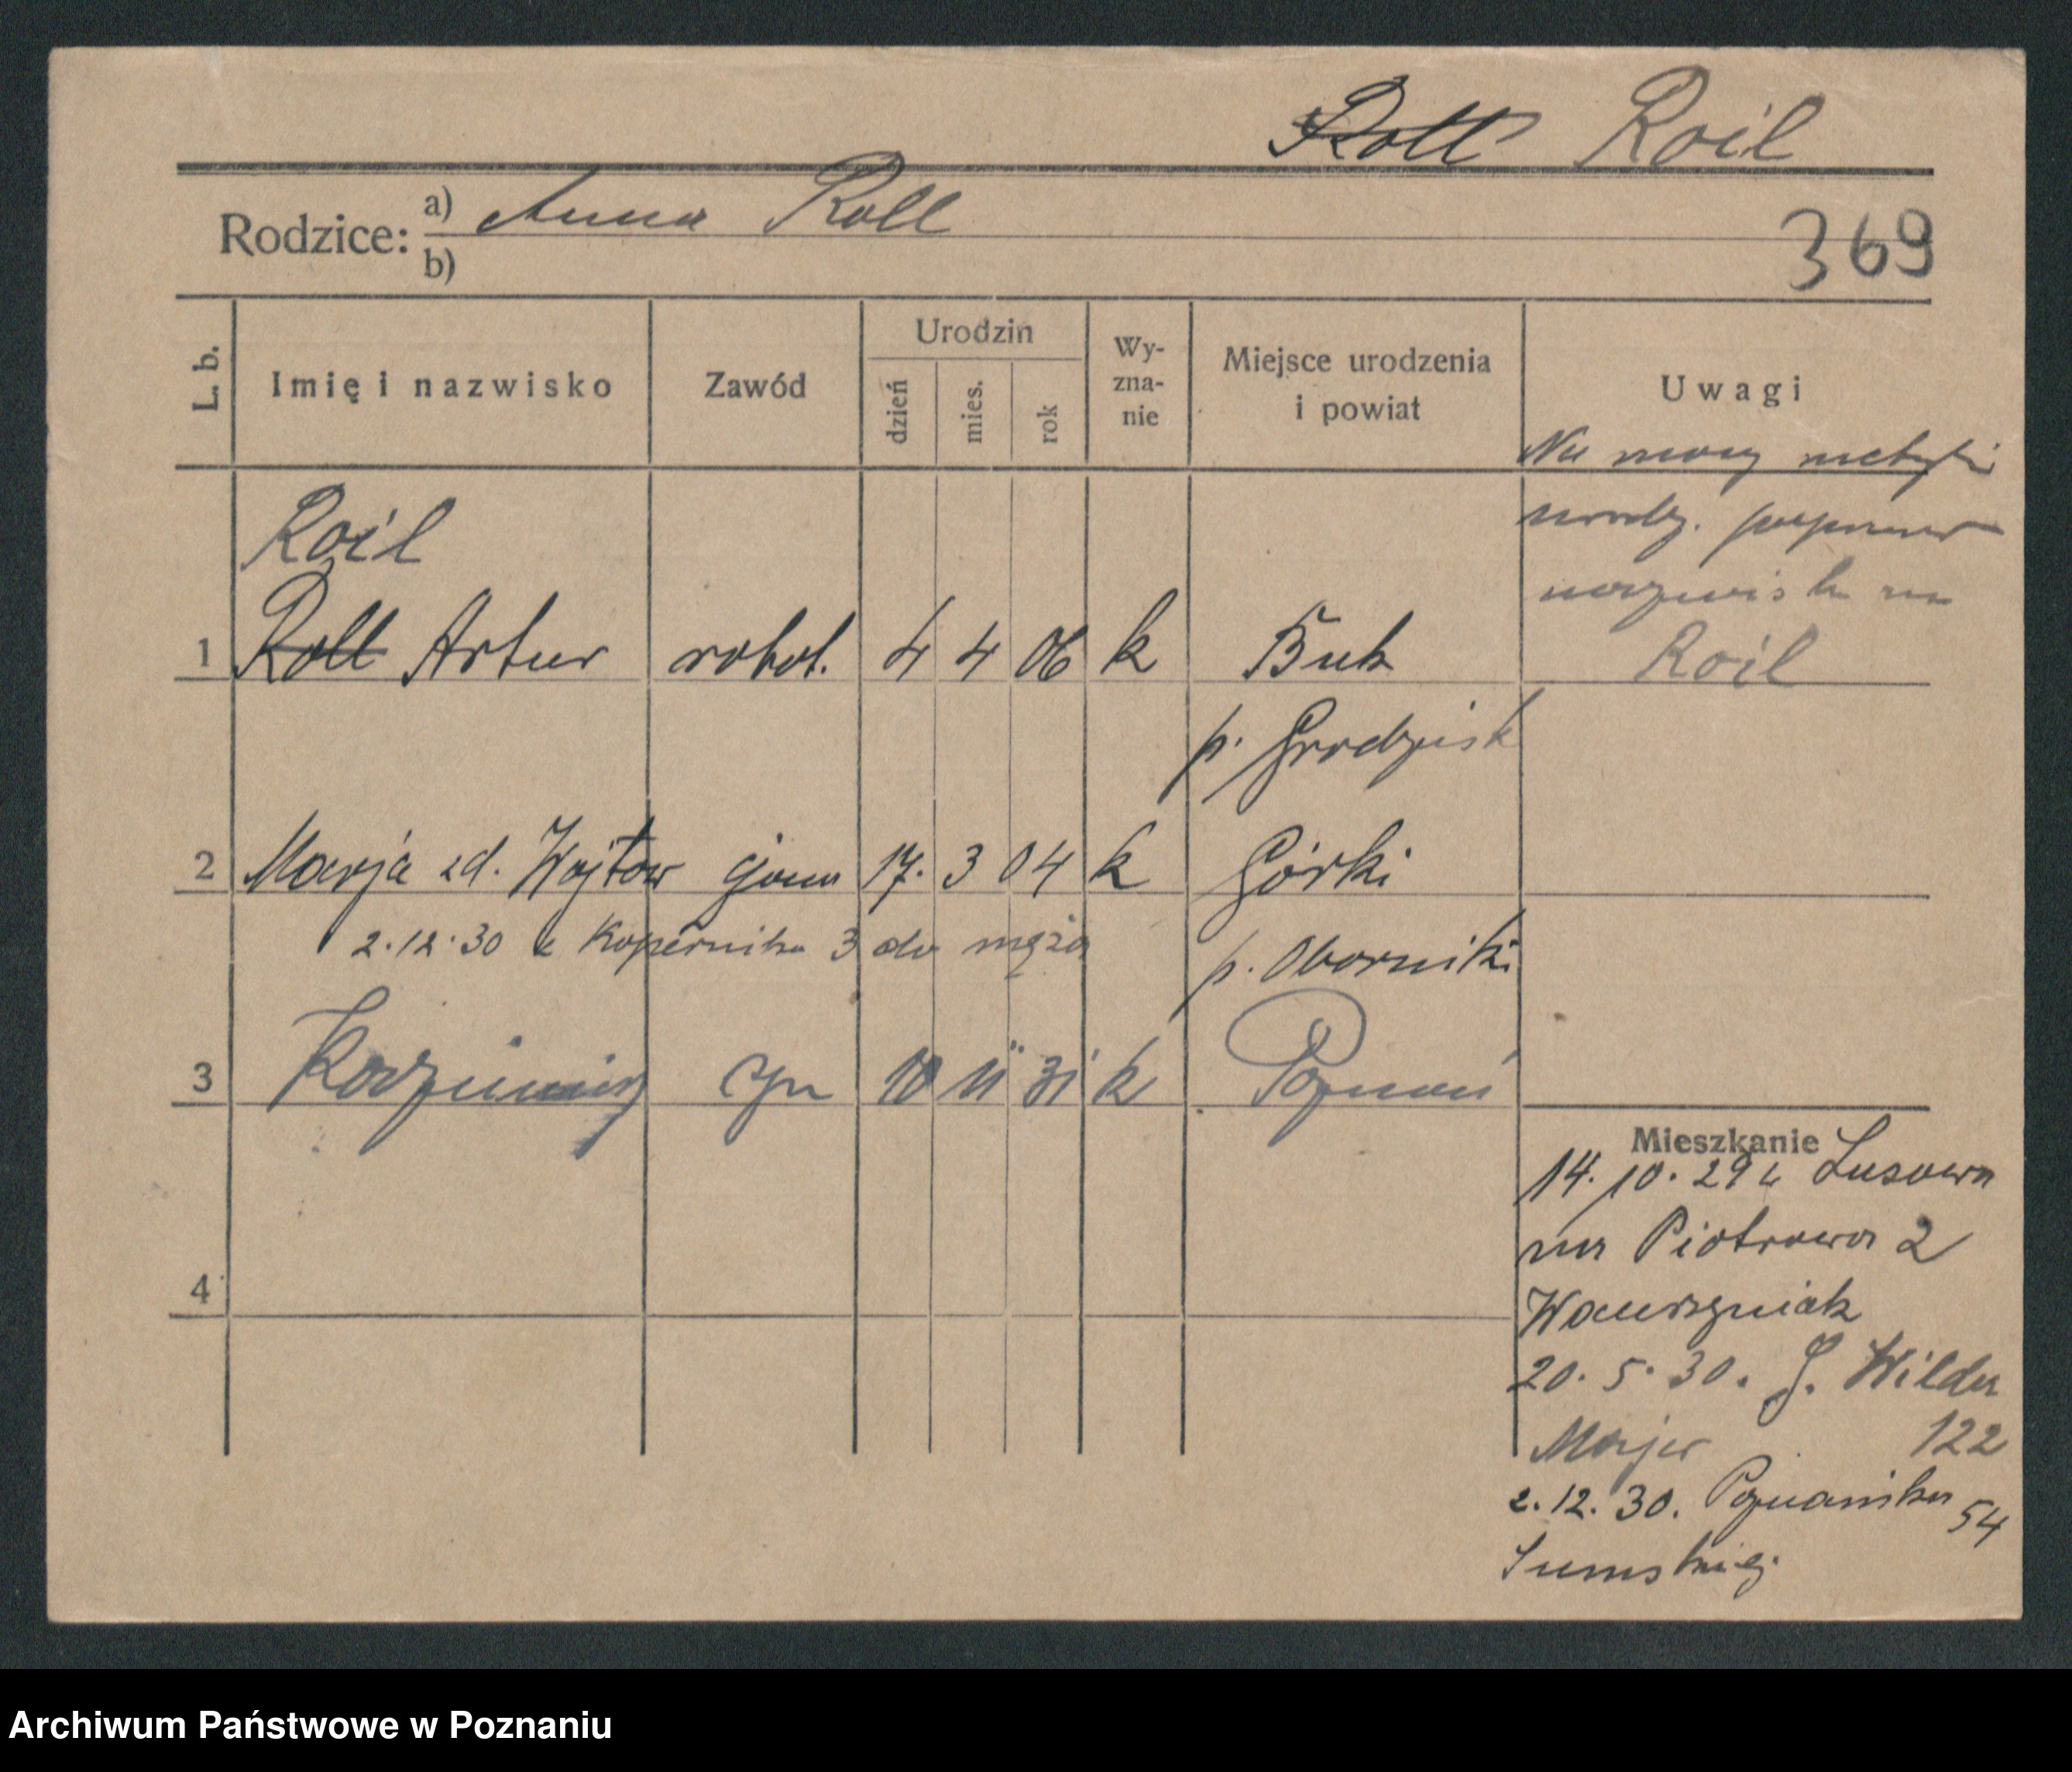 Roll Roil
Rodzice: a) Anna Roll
b)
369
L. b. Imię i nazwisko Zawód Urodzin dzień mies. rok Wy-zna-nie Miejsce urodzenia i powiat Uwagi
Na mocy metryki
urodz.
nazwisko na
Roil
Roil
1 Roll Artur robot. 4 4 06 k Buk
p. Grodzisk
2 Marja zd. Wojtow żona 17. 3 04 k Górki
2.12.30 z Kopernika 3 do męża p. Oborniki
3 Kazimierz syn 10 11 31 k Poznań
4
Mieszkanie
14.10.29 z Lusowa
na Piotrowo 2
Wawrzyniak
20.5.30. G. Wilda
Majer 122
2.12.30. Poznańska 54
Archiwum Państwowe w Poznaniu